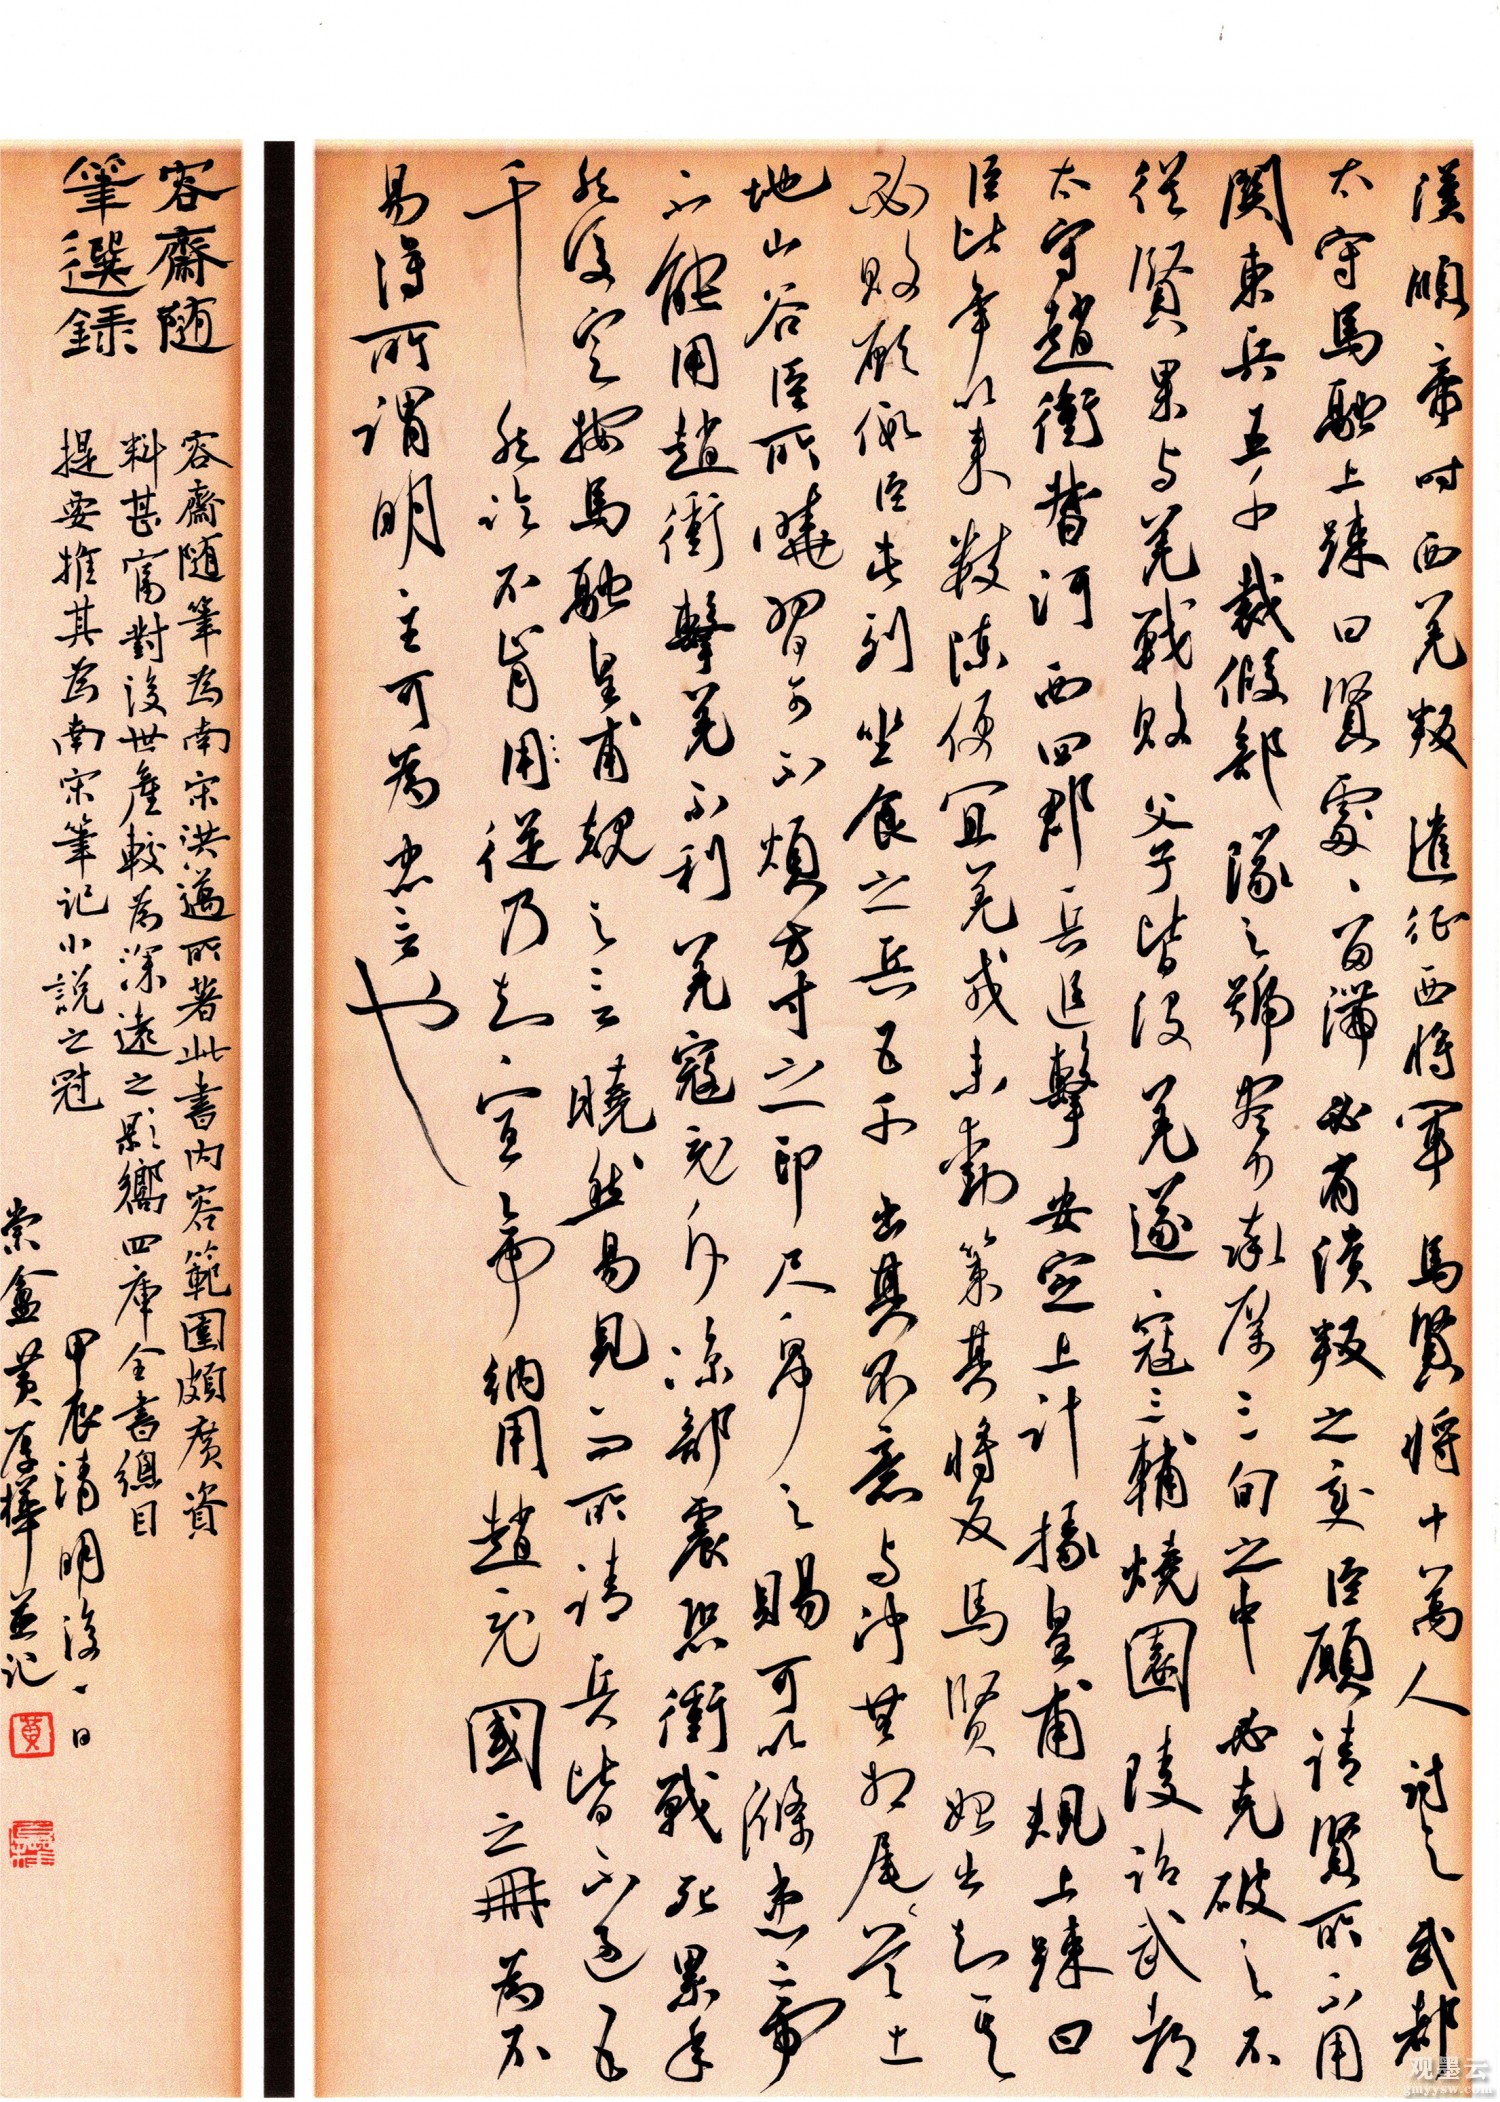 漢順帝時西羌叛遣征西將軍馬賢將十萬人討之武都
太守馬融上疏曰賢處處留滯必有潰叛之變臣願請賢所不用
関東兵五千裁假部隊之號盡力率厲三旬之中必克破之不
從賢果与羌戰敗父子皆没羌遂遂寇三輔燒園陵詔武都
太守趙衝督河西四郡兵追擊安定上計掾皇甫規上疏曰
臣比年以来數陳便宜羌戎未動策其將反馬賢始出知其
必敗願假臣屯列坐食之兵五千出其不意与衝共相首尾土
地山谷臣所曉習可不煩方寸之印尺帛之賜可以滌患帝
不能用趙衝擊羌不利羌寇充斥涼部震恐衝戰死累年
然後定按馬融皇甫規之言曉然易見而所請兵皆不過五
千然訖不肯用從乃知宣帝納用趙充國之冊為不
易得所謂明主可為忠言也
容齋随
筆選録
容齋随筆為南宋洪邁所著此書内容範圍頗廣資
料甚富對後世產較為深遠之影嚮四庫全書總目
提要推其為南宋筆記小說之冠
甲辰清明後一日
崇盦黄厚樺並记
黄
观墨云
gmyysw.com